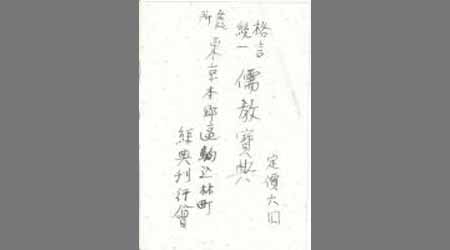 格言
統一
儒教寶典
定價六円
東京本郷區駒込林町
經典刊行會